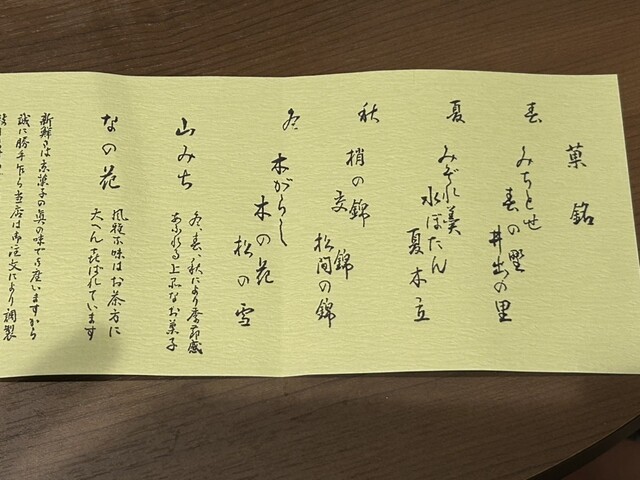 菓銘
春 みちとせ
春の野
井出の里
夏 みぞれ羹
水ぼたん
夏木立
秋 梢の錦
錦
松間の錦
冬 木がらし
木の花
松の雪
山みち
冬、春、秋により季節感
あふれる上品なお菓子
なの花
風雅な味はお茶方に
大へん喜ばれています
新鮮さは京菓子の真の味で御座いますから
誠に勝手乍ら当店は御注文により調製